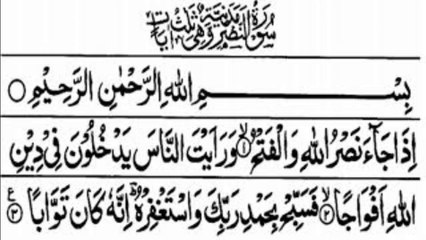 سُوْرَةُ النَّصْرِ مَدَنِيَّةٌ وَّهِيَ ثَلٰثُ اٰيَاتٍ
بِسْمِ اللهِ الرَّحْمٰنِ الرَّحِيْمِ ○
اِذَا جَآءَ نَصْرُ اللهِ وَالْفَتْحُ ۙ‏۱ وَرَاَيْتَ النَّاسَ يَدْخُلُوْنَ فِيْ دِيْنِ
اللهِ اَفْوَاجًا ۙ‏۲ فَسَبِّحْ بِحَمْدِ رَبِّكَ وَاسْتَغْفِرْهُ ؕ اِنَّهٗ كَانَ تَوَّابًا ‏۳ ع